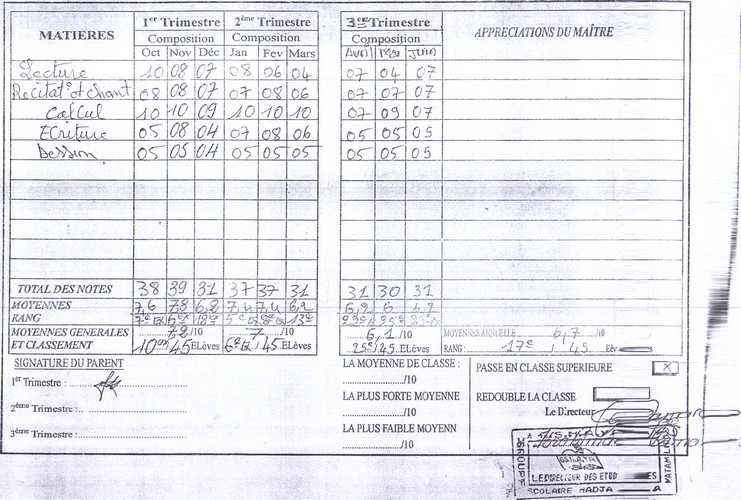 MATIERES 1er Trimestre 2ème Trimestre 3ème Trimestre APPRECIATIONS DU MAÎTRE
Composition Composition Composition
Oct Nov Déc Jan Fev Mars Avri Mai Juin
Lecture 10 08 07 08 06 04 07 04 07
Recitat° et chant 08 08 07 07 08 06 07 07 07
Calcul 10 10 09 10 10 10 07 09 07
Ecriture 05 08 04 07 08 06 05 05 05
Dession 05 05 04 05 05 05 05 05 05
TOTAL DES NOTES 38 39 31 37 37 31 31 30 31
MOYENNES 7,6 7,8 6,2 7,4 7,4 6,2 6,2 6 6,2
RANG
MOYENNES GENERALES 7,2/10 7/10 6,1/10 MOYENNE ANNUELLE 6,7/10
ET CLASSEMENT 10ex/45 ELèves 6e ex/45 ELèves 25e/45 ELèves RANG : 17e / 45
SIGNATURE DU PARENT
1er Trimestre :
2ème Trimestre :..
3ème Trimestre :
LA MOYENNE DE CLASSE :
/10
LA PLUS FORTE MOYENNE
/10
LA PLUS FAIBLE MOYENN
/10
PASSE EN CLASSE SUPERIEURE X
REDOUBLE LA CLASSE
Le Directeur
LE DIRECTEUR DES ETUD ES
SCOLAIRE HADJA A
GROUP
MATAM